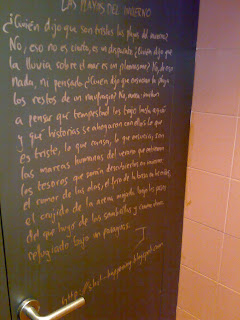 LAS PLAYAS DEL INVIERNO
¿Quién dijo que son tristes las playas del invierno?
No, eso no es cierto, es un disparate. ¿Quién dijo que
la lluvia sobre el mar es un pleonasmo? No, de eso
nada, ni pensarlo. ¿Quién dijo que en la playa
los restos de un naufragio? No, nunca
a pensar que tempestad los trajo hasta aquí
y qué historias se ahogaron con ellos. Lo que
es triste, lo que cansa, lo que enturbia, son
las mareas humanas del verano que
los tesoros que podría descubrirte su
el rumor de las olas, el
el crujido de la arena mojada bajo los pasos
del que huye de las sombrillas y
refugiado bajo un paraguas.
http://